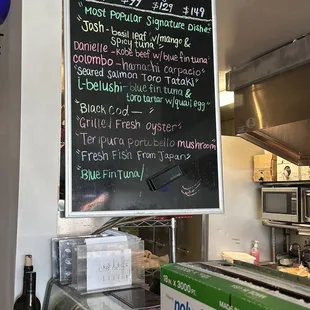 $99 $129 $149
"Most Popular Signature Dishes"
Josh - basil leaf w/mango &
spicy tuna
Danielle - Kobe beef w/blue fin tuna
colombo - hamachi carpacio
"Seared Salmon Toro Tataki"
i-belushi - blue fin tuna &
toro tartar w/quail egg
"Black Cod —"
"Grilled Fresh oyster"
"Teripura portobello mushroom"
"Fresh Fish From Japan"
"Blue Fin Tuna/
18 in x 3000 ft